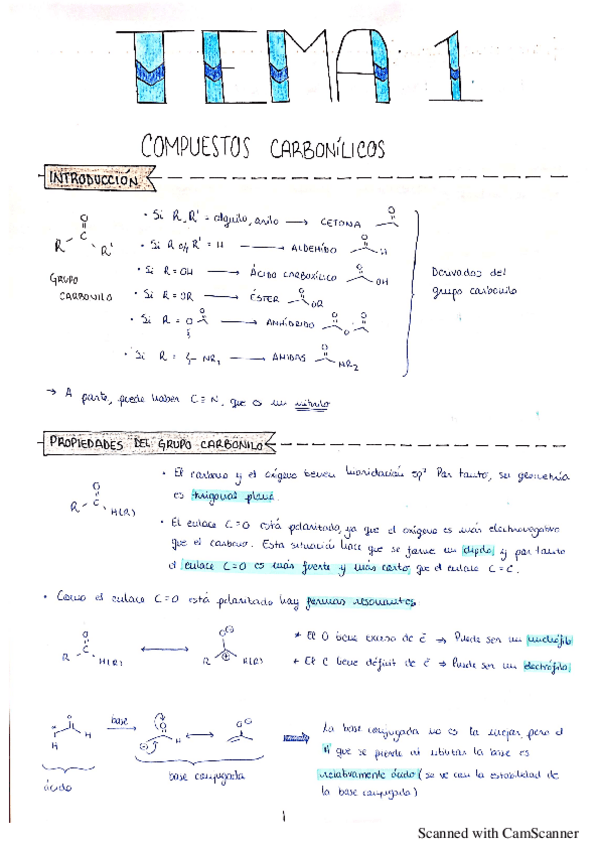 TEMA 1
COMPUESTOS CARBONÍLICOS
INTRODUCCIÓN
O
C
R R'
GRUPO
CARBONILO
· Si R, R' = alquilo, arilo → CETONA O
· Si R o/y R' = H → ALDEHÍDO O H
· Si R = OH → ÁCIDO CARBOXÍLICO O OH
· Si R = OR → ÉSTER O OR
· Si R = O O → ANHÍDRIDO O O O
· Si R = NR₂ → AMIDAS O NR₂
Derivados del
grupo carbonilo
→ A parte, puede haber C≡N, que es un nitrilo
PROPIEDADES DEL GRUPO CARBONILO
O
R C H(R)
· El carbono y el oxígeno tienen hibridación sp² Por tanto, su geometría
es trigonal plana.
· El enlace C=O está polarizado, ya que el oxígeno es más electronegativo
que el carbono. Esta situación hace que se forme un dipolo, y por tanto
el enlace C=O es más fuerte y más corto, que el enlace C=C.
· Como el enlace C=O está polarizado hay formas resonantes
O
R C H(R) ↔ O⊖ R ⊕ R(R)
* El O tiene exceso de ē → Puede ser un nucleófilo
* El C tiene déficit de ē → Puede ser un electrófilo
O H H base → O ⊖ H ↔ O⊖
ácido
base conjugada
La base conjugada no es la mejor, pero el
H que se pierde al tributar la base es
relativamente ácido (se ve con la estabilidad de
la base conjugada)
1
Scanned with CamScanner